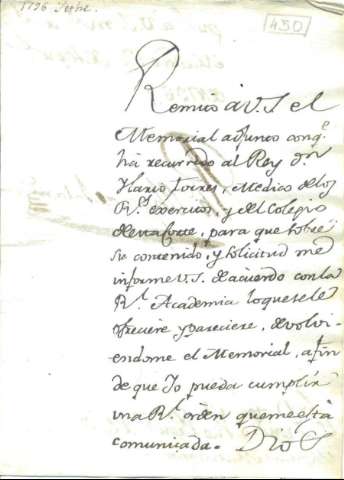 1796 Setre.
450
Remito a V.S el
Memorial adjunto con q.e
ha recurrido al Rey d.n
Ylario Torres, Medico de los
R.s exercitos, y del Colegio
de esta Corte, para que sobre
su contenido, y solicitud me
informe V.S. de acuerdo con la
R.l Academia lo que se le
ofreciere y pareciere, devolvi-
endome el Memorial, a fin
de que Yo pueda cumplir
una R.l orden que me está
comunicada. Dios